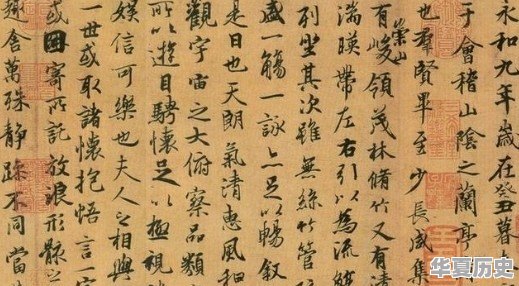 永和九年歲在癸丑暮
于會稽山陰之蘭亭
也羣賢畢至少長咸集
有崇山峻領茂林脩竹又有清
湍暎帶左右引以為流
列坐其次雖無絲竹管
盛一觴一詠亦足以暢敘
是日也天朗氣清惠風和
觀宇宙之大俯察品類
所以遊目騁懷足以極視
娛信可樂也夫人之相與
一世或取諸懷抱悟言一
或因寄所託放浪形骸之
趣舍萬殊靜躁不同當
华夏历史